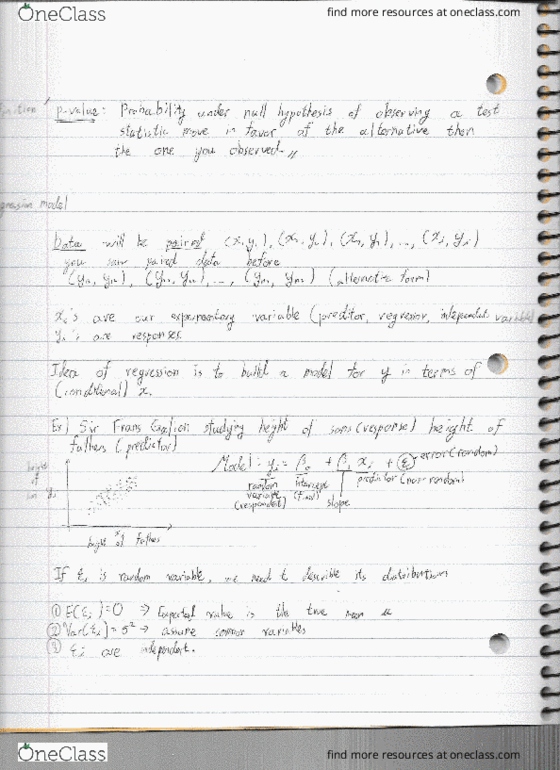 OneClass
find more resources at oneclass.com
p-value: Probability under null hypothesis of observing a test
statistic move in favor of the alternative then
the one you observed.
gression model
Data will be paired (x₁, y₁), (x₂, y₂), (x₃, y₃), ..., (xᵢ, yᵢ)
you saw paired data before
(alternative form)
xᵢ's are our expanentory variable (preditor, regressor, independent variable
yᵢ's are responses.
Idea of regression is to build a model for y in terms of
(conditional) x.
Ex) Sir Frans Galion studying height of sons (response) height of
fathers (predictor)
Model: yᵢ = β₀ + β₁ xᵢ + εᵢ error (random)
random intercept predictor (non-random)
variable (fixed)
(respondent) slope
height
of
yᵢ
height of father
x
If εᵢ is random variable, we need t describe its distribution
① E(εᵢ)=0 → Expected value is the true mean μ
② Var(εᵢ)=σ² → assume common variables
③ εᵢ are independent.
OneClass
find more resources at oneclass.com